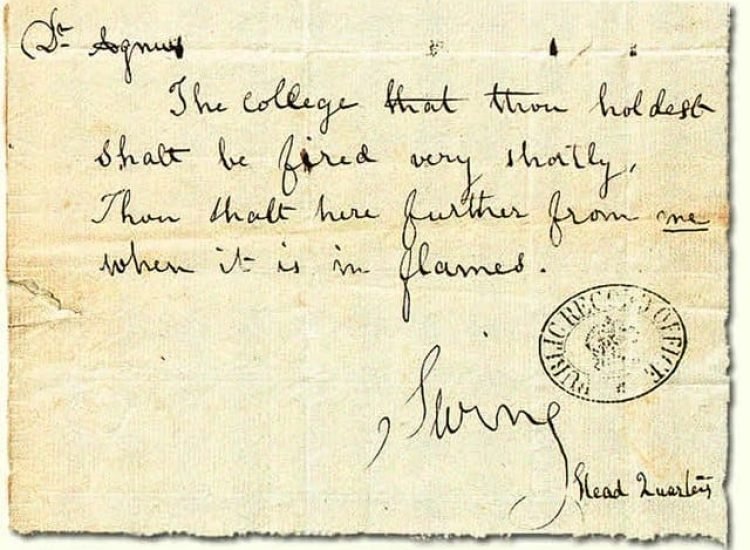 Dr
The college that thou holdest
Shalt be fired very shortly,
Thou shalt here further from me
when it is in flames.
PUBLIC RECORD OFFICE
Swing
Head Quarters